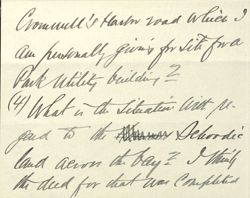 Cromwell's Harbor road which I
am personally giving for site for a
Park Utility building?
(4) What is the situation with re
gard to the Schoodic
land across the bay? I think
the deed for that was completed